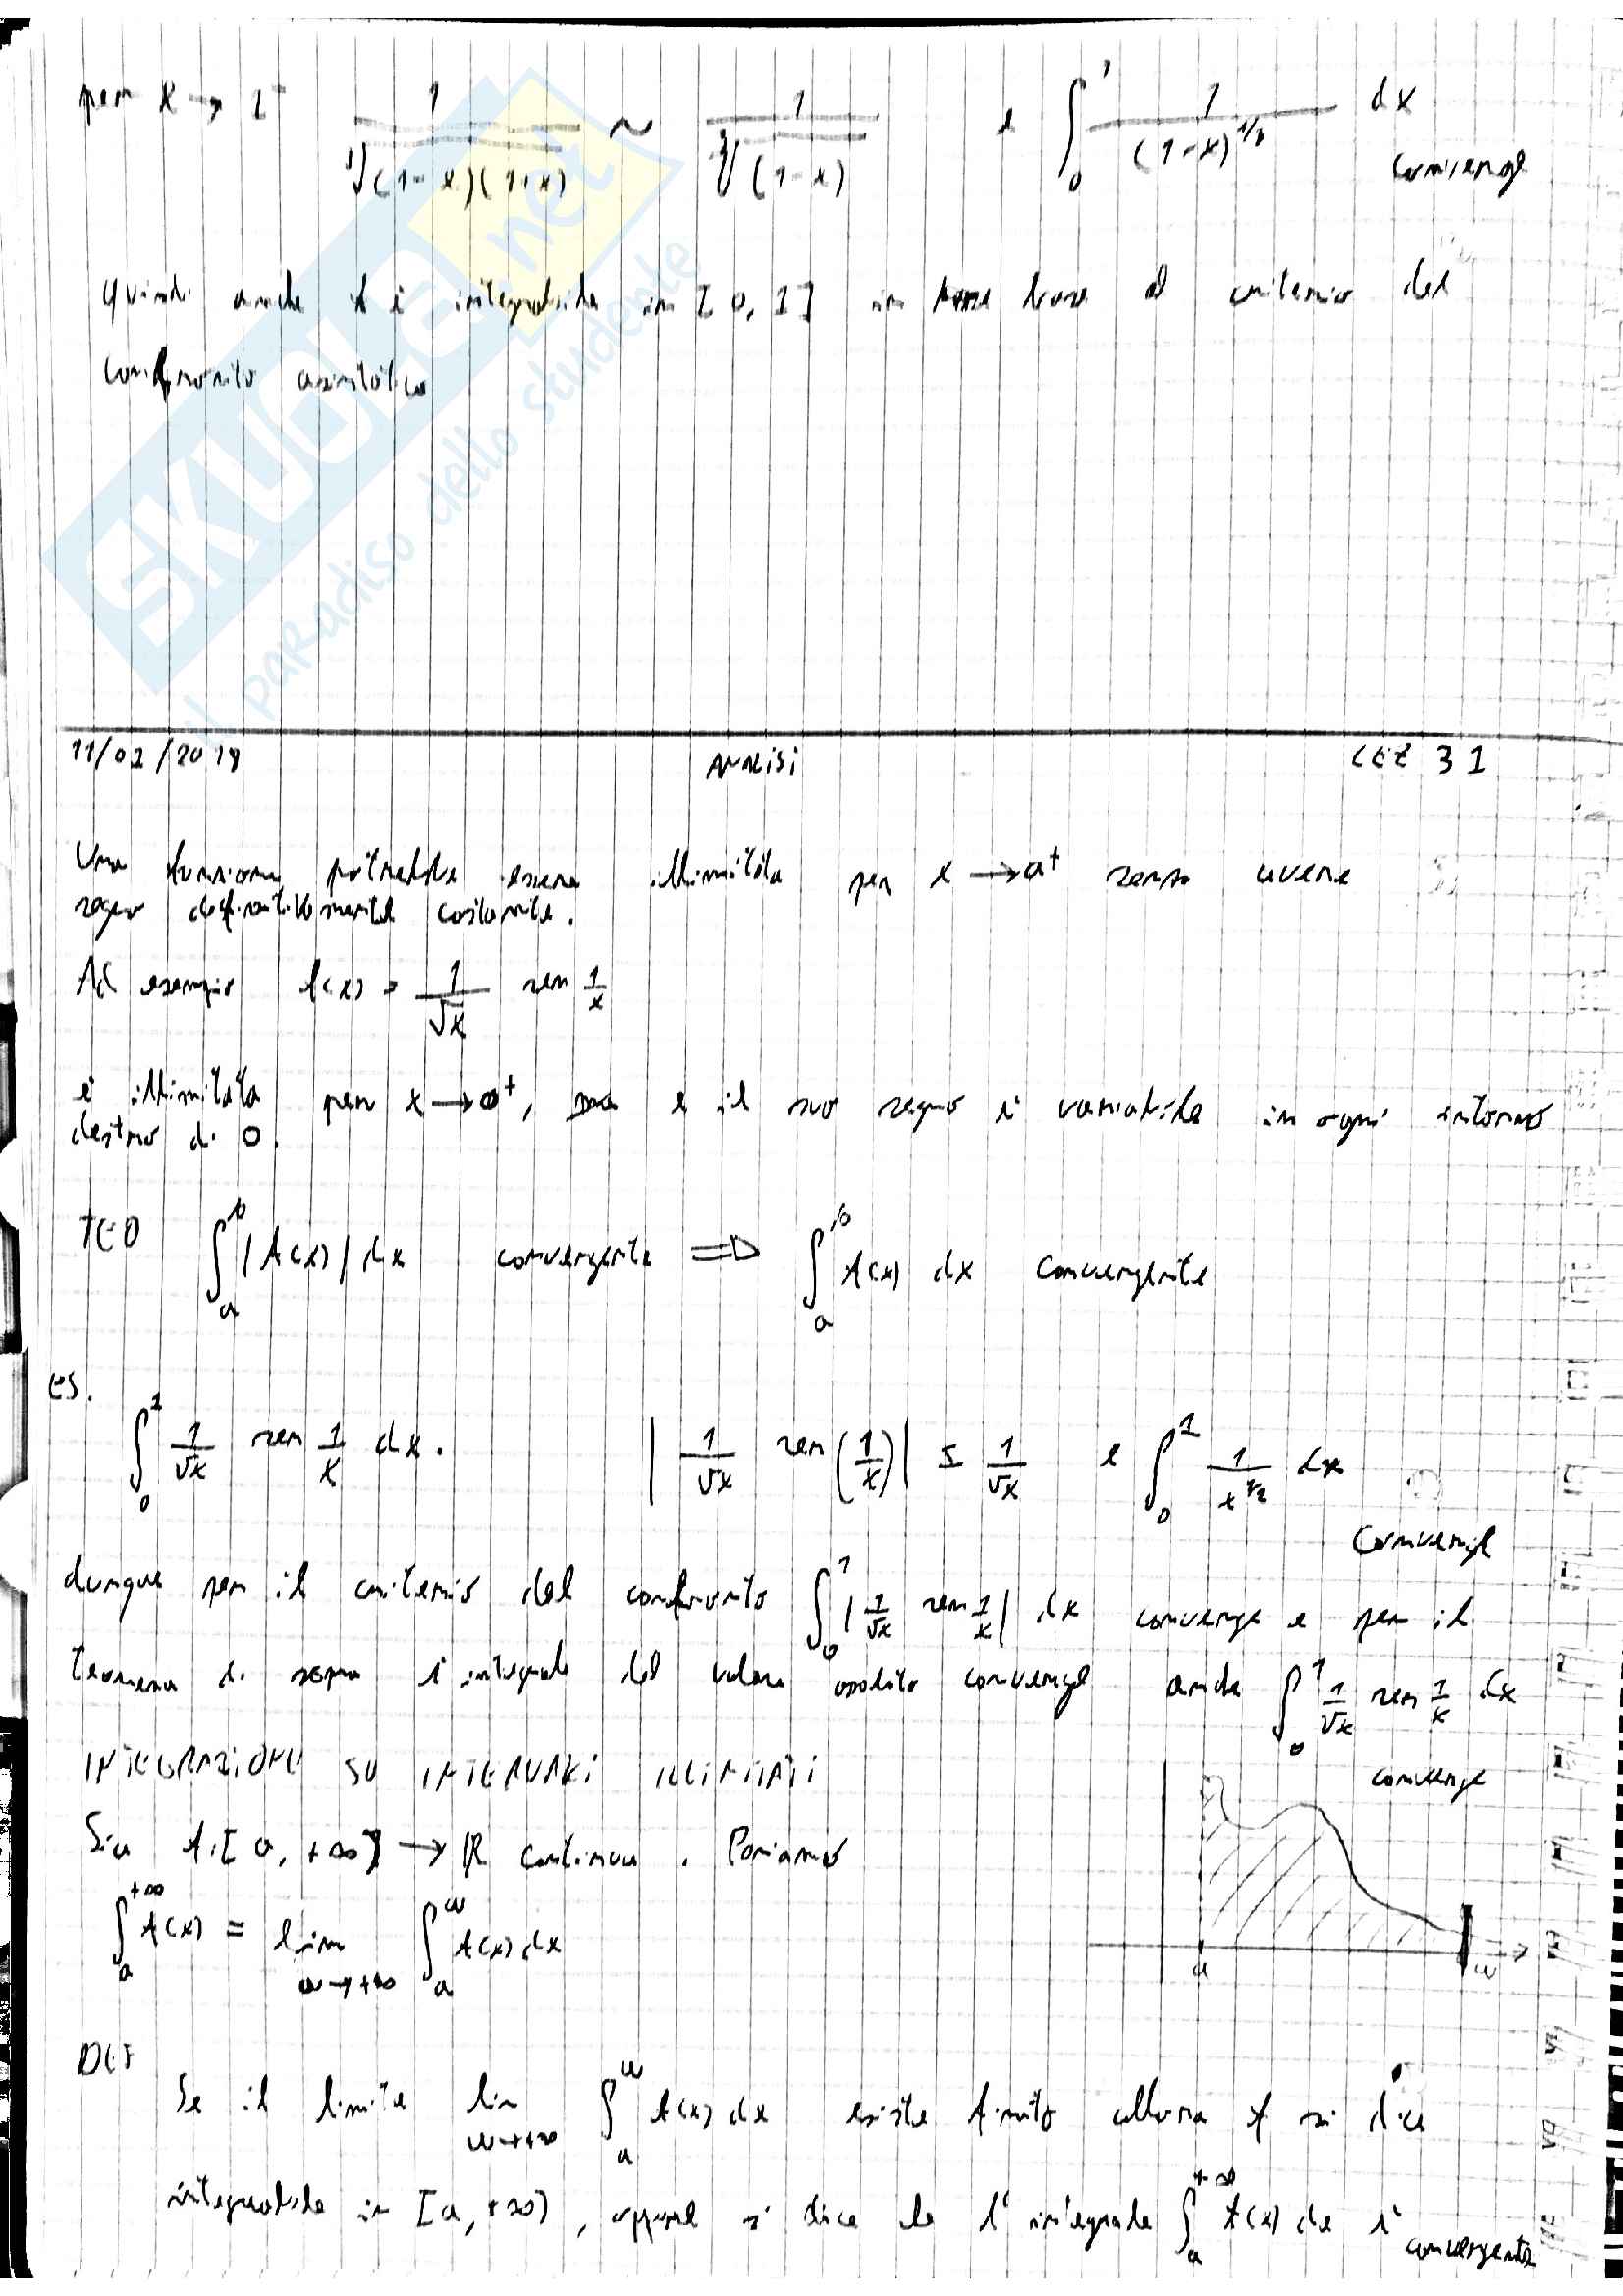 per x → 1⁻ 1/∛((1-x)(1+x)) ~ 1/∛(1-x) e ∫₀¹ 1/(1-x)^(1/3) dx converge
quindi anche f è integrabile in [0, 1] in base al criterio del
confronto asintotico
SKUOLA.net
il paradiso dello studente
ANALISI LEZ 31
Una funzione potrebbe essere illimitata per x → a⁺ senza avere
segno definitivamente costante.
Ad esempio f(x) = 1/√x sen 1/x
è illimitata per x → 0⁺, e il suo segno è variabile in ogni intorno
destro di 0.
TEO ∫ₐᵇ |f(x)| dx convergente ⇒ ∫ₐᵇ f(x) dx convergente
es.
∫₀¹ 1/√x sen 1/x dx. |1/√x sen(1/x)| ≤ 1/√x e ∫₀¹ 1/x^(1/2) dx
converge
dunque per il criterio del confronto ∫₀¹ |1/√x sen 1/x| dx converge e per il
teorema di sopra l'integrale del valore assoluto converge anche ∫₀¹ 1/√x sen 1/x dx
converge
INTEGRAZIONE SU INTERVALLI ILLIMITATI
Sia f: [a, +∞) → ℝ continua. Poniamo
∫ₐ^(+∞) f(x) = lim_(ω→+∞) ∫ₐ^ω f(x) dx
a ω
DEF
Se il limite lim_(ω→+∞) ∫ₐ^ω f(x) dx esiste finito allora f si dice
integrabile in [a, +∞), oppure si dice che l'integrale ∫ₐ^(+∞) f(x) dx è
convergente